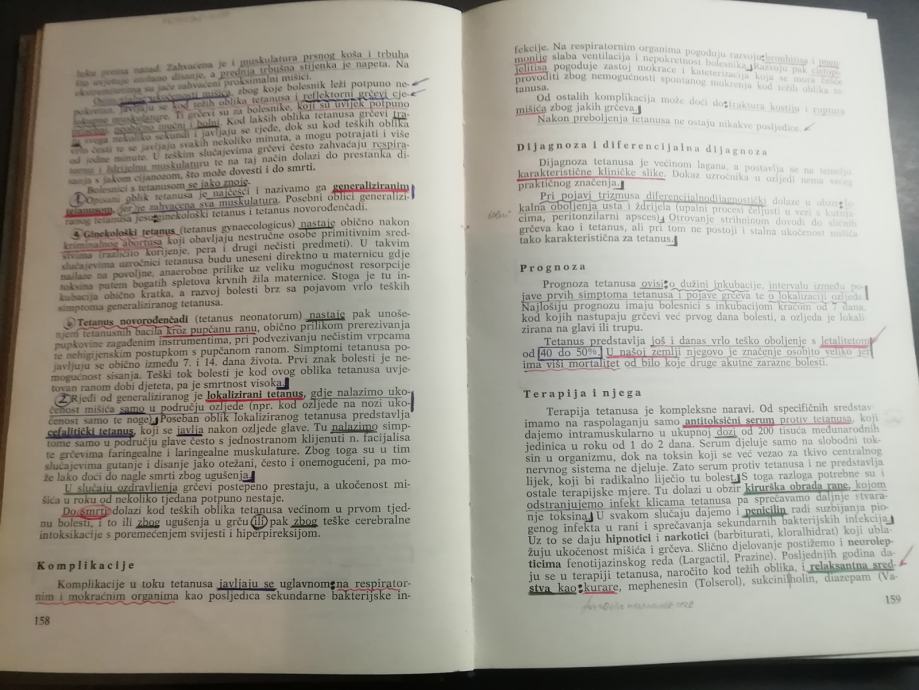 luku prema nazad. Zahvaćena je i muskulatura prsnog koša i trbuha
što uvjetuje otežano disanje, a prednja trbušna stijenka je napeta. Na
ekstremitetima su jače zahvaćeni proksimalni mišići.
Osim ukočenosti mišića, zbog koje bolesnik leži potpuno ne-
pokretan, javljaju se kod težih oblika tetanusa i reflektorni grčevi cje-
lokupne muskulature. Ti grčevi su za bolesnike, koji su uvijek potpuno
svjesni, neobično mučni i bolni. Kod lakših oblika tetanusa grčevi tra-
ju svega nekoliko sekundi i javljaju se rjeđe, dok su kod teških oblika
vrlo česti te se javljaju svakih nekoliko minuta, a mogu potrajati i više
od jedne minute. U teškim slučajevima grčevi često zahvaćaju respira-
tornu i ždrijelnu muskulaturu te na taj način dolazi do prestanka di-
sanja s jakom cijanozom, što može dovesti i do smrti.
Bolesnici s tetanusom se jako znoje.
1 Opisani oblik tetanusa je najčešći i nazivamo ga generaliziranim
tetanusom, jer je zahvaćena sva muskulatura. Posebni oblici generalizi-
ranog tetanusa jesu: ginekološki tetanus i tetanus novorođenčadi.
a Ginekološki tetanus (tetanus gynaecologicus) nastaje obično nakon
kriminalnog abortusa koji obavljaju nestručne osobe primitivnim sred-
stvima (različito korijenje, pera i drugi nečisti predmeti). U takvim
slučajevima uzročnici tetanusa budu uneseni direktno u maternicu gdje
nailaze na povoljne, anaerobne prilike uz veliku mogućnost resorpcije
toksina putem bogatih spletova krvnih žila maternice. Stoga je tu in-
kubacija obično kratka, a razvoj bolesti brz sa pojavom vrlo teških
simptoma generaliziranog tetanusa.
b Tetanus novorođenčadi (tetanus neonatorum) nastaje pak unoše-
njem tetanusnih bacila kroz pupčanu ranu, obično prilikom prerezivanja
pupkovine zagađenim instrumentima, pri podvezivanju nečistim vrpcama
te nehigijenskim postupkom s pupčanom ranom. Simptomi tetanusa po-
javljuju se obično između 7. i 14. dana života. Prvi znak bolesti je ne-
mogućnost sisanja. Teški tok bolesti je kod ovog oblika tetanusa uvje-
tovan ranom dobi djeteta, pa je smrtnost visoka.
2 Rjeđi od generaliziranog je lokalizirani tetanus, gdje nalazimo uko-
čenost mišića samo u području ozljede (npr. kod ozljede na nozi uko-
čenost samo te noge). Poseban oblik lokaliziranog tetanusa predstavlja
cefalitički tetanus, koji se javlja nakon ozljede glave. Tu nalazimo simp-
tome samo u području glave često s jednostranom klijenuti n. facijalisa
te grčevima faringealne i laringealne muskulature. Zbog toga su u tim
slučajevima gutanje i disanje jako otežani, često i onemogućeni, pa mo-
že lako doći do nagle smrti zbog ugušenja.
U slučaju ozdravljenja grčevi postepeno prestaju, a ukočenost mi-
šića u roku od nekoliko tjedana potpuno nestaje.
Do smrti dolazi kod teških oblika tetanusa većinom u prvom tjed-
nu bolesti, i to ili zbog ugušenja u grču ili pak zbog teške cerebralne
intoksikacije s poremećenjem svijesti i hiperpireksijom.
Komplikacije
Komplikacije u toku tetanusa javljaju se uglavnom na respirator-
nim i mokraćnim organima kao posljedica sekundarne bakterijske in-
158
fekcije. Na respiratornim organima pogoduju razvoju bronhitisa i pneu-
monije slaba ventilacija i nepokretnost bolesnika, razvoju pak cistopi-
jelitisa pogoduje zastoj mokrace i kateterizacija koja se mora često
provoditi zbog nemogućnosti spontanog mokrenja kod težih oblika te-
tanusa.
Od ostalih komplikacija može doći do fraktura kostiju i ruptura
mišića zbog jakih grčeva.
Nakon preboljenja tetanusa ne ostaju nikakve posljedice.
Dijagnoza i diferencijalna dijagnoza
Dijagnoza tetanusa je većinom lagana, a postavlja se na temelju
karakteristične kliničke slike. Dokaz uzročnika u ozljedi nema većeg
praktičnog značenja.
Pri pojavi trizmusa diferencijalnodijagnostički dolaze u obzir lo-
kalna oboljenja usta i ždrijela (upalni proces čeljusti u vezi s kutnja-
cima, peritonzilarni apsces). Otrovanje strihninom dovodi do sličnih
grčeva kao i tetanus, ali pri tom ne postoji i stalna ukočenost mišića
tako karakteristična za tetanus.
Prognoza
Prognoza tetanusa ovisi o dužini inkubacije, intervalu između po-
jave prvih simptoma tetanusa i pojave grčeva te o lokalizaciji ozljede.
Najlošiju prognozu imaju bolesnici s inkubacijom kraćom od 7 dana,
kod kojih nastupaju grčevi već prvog dana bolesti, a ozljeda je lokali-
zirana na glavi ili trupu.
Tetanus predstavlja još i danas vrlo teško oboljenje s letalitetom
od 40 do 50%. U našoj zemlji njegovo je značenje osobito veliko jer
ima viši mortalitet od bilo koje druge akutne zarazne bolesti.
Terapija i njega
Terapija tetanusa je kompleksne naravi. Od specifičnih sredstava
imamo na raspolaganju samo antitoksični serum protiv tetanusa, koji
dajemo intramuskularno u ukupnoj dozi od 200 tisuća međunarodnih
jedinica u roku od 1 do 2 dana. Serum djeluje samo na slobodni tok-
sin u organizmu, dok na toksin koji se već vezao za tkivo centralnog
nervnog sistema ne djeluje. Zato serum protiv tetanusa i ne predstavlja
lijek, koji bi radikalno liječio tu bolest. S toga razloga potrebne su i
ostale terapijske mjere. Tu dolazi u obzir kirurška obrada rane, kojom
odstranjujemo infekt klicama tetanusa pa sprečavamo daljnje stvara-
nje toksina. U svakom slučaju dajemo i penicilin radi suzbijanja pio-
genog infekta u rani i sprečavanja sekundarnih bakterijskih infekcija.
Uz to se daju hipnotici i narkotici (barbiturati, kloralhidrat) koji ubla-
žuju ukočenost mišića i grčeva. Slično djelovanje postižemo i neurolep-
ticima fenotijazinskog reda (Largactil, Prazine). Posljednjih godina da-
ju se u terapiji tetanusa, naročito kod težih oblika, i relaksantna sred-
stva kao: kurare, mephenesin (Tolserol), sukcinilholin, diazepam (Va-
159